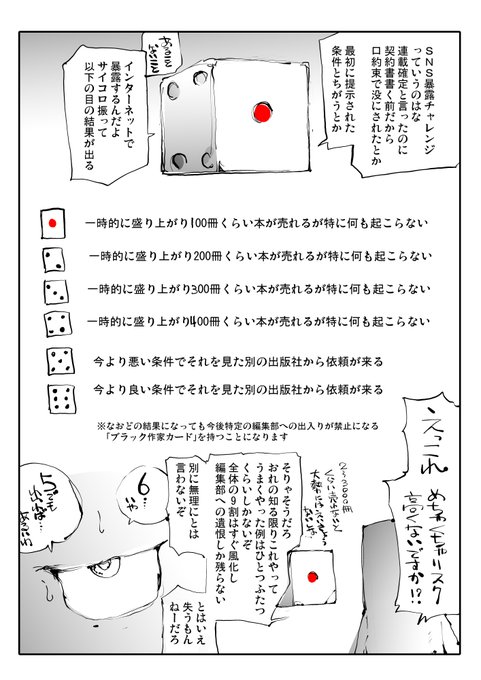 SNS暴露チャレンジ
っていうのはな
連載確定と言ったのに
契約書書く前だから
口約束で没にされたとか
最初に提示された
条件とちがうとか
あるコミ
インターネットで
暴露するんだよ
サイコロ振って
以下の目の結果が出る
一時的に盛り上がり100冊くらい本が売れるが特に何も起こらない
一時的に盛り上がり200冊くらい本が売れるが特に何も起こらない
一時的に盛り上がり300冊くらい本が売れるが特に何も起こらない
一時的に盛り上がり400冊くらい本が売れるが特に何も起こらない
今より悪い条件でそれを見た別の出版社から依頼が来る
今より良い条件でそれを見た別の出版社から依頼が来る
※なおどの結果になっても今後特定の編集部への出入りが禁止になる
「ブラック作家カード」を持つことになります
えっこれ
めちゃくちゃリスク
高くないですか!?
そりゃそうだろ
おれの知る限りこれやって
うまくやった例はひとつふたつ
くらいしかないぞ
全体の9割はすぐ風化し
編集部への遺恨しか残らない
別に無理にとは
言わないぞ
6…
いや…
5でも
出れば…
とはいえ
失うもん
ねーだろ